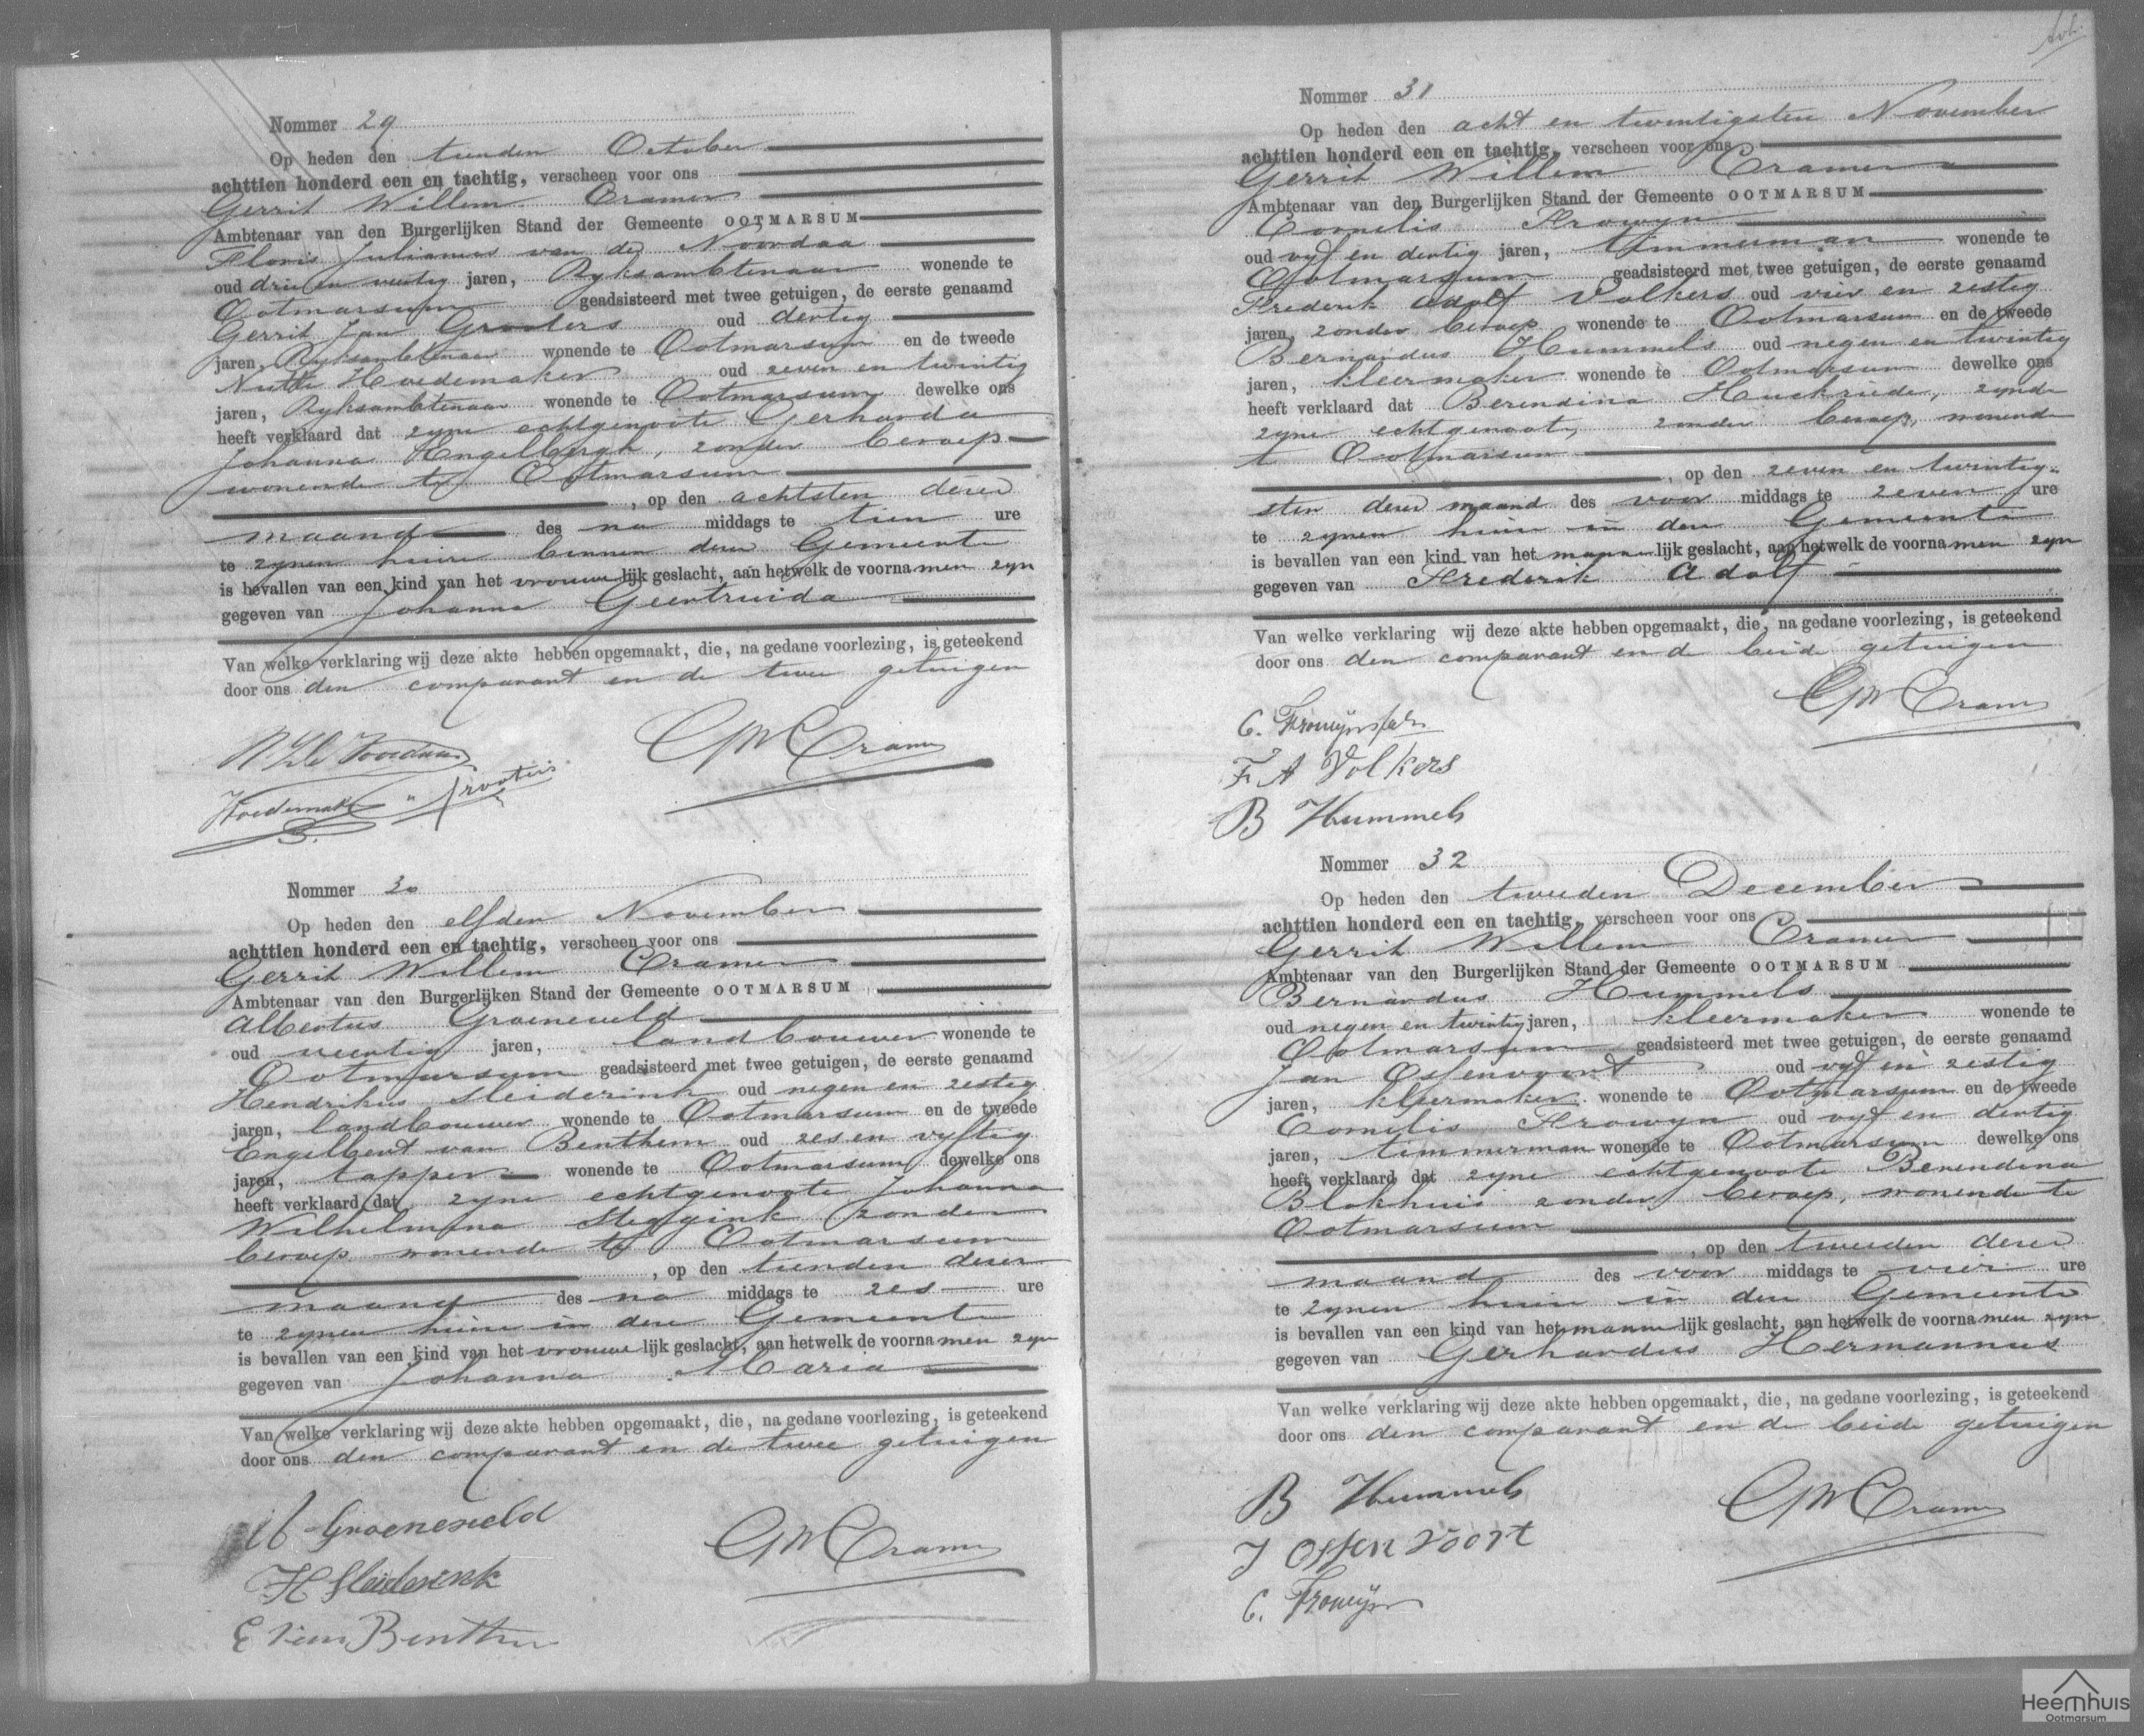 Nommer 29
Op heden den tienden October
achttien honderd een en tachtig, verscheen voor ons
Gerrit Willem Cramer
Ambtenaar van den Burgerlijken Stand der Gemeente OOTMARSUM
Floris Julianus van de Noordaa
oud drie en veertig jaren, Ryksambtenaar wonende te
Ootmarsum geadsisteerd met twee getuigen, de eerste genaamd
Gerrit Jan Grooters oud dertig
jaren, Ryksambtenaar wonende te Ootmarsum en de tweede
Hoedemaker oud zeven en twintig
jaren, Ryksambtenaar wonende te Ootmarsum dewelke ons
heeft verklaard dat zyne echtgenoote Gerharda
Johanna Engelbergh, zonder beroep
wonende te Ootmarsum
, op den achtsten dezer
maand des na middags te tien ure
te zynen huize binnen deze Gemeente
is bevallen van een kind van het vrouwelijk geslacht, aan hetwelk de voornamen zyn
gegeven van Johanna Geertruida
Van welke verklaring wij deze akte hebben opgemaakt, die, na gedane voorlezing, is geteekend
door ons den comparant en de twee getuigen
Noordaa GWCramer
Hoedemaker Grooters
Nommer 30
Op heden den elfden November
achttien honderd een en tachtig, verscheen voor ons
Gerrit Willem Cramer
Ambtenaar van den Burgerlijken Stand der Gemeente OOTMARSUM
Albertus Groeneveld
oud veertig jaren, landbouwer wonende te
Ootmarsum geadsisteerd met twee getuigen, de eerste genaamd
Hendrikus Sleiderink oud negen en zestig
jaren, landbouwer wonende te Ootmarsum en de tweede
Engelbert van Benthem oud zes en vyftig
jaren, tapper wonende te Ootmarsum dewelke ons
heeft verklaard dat zyne echtgenoote Johanna
Wilhelmina Steggink zonder
beroep wonende te Ootmarsum
, op den tienden dezer
maand des na middags te zes ure
te zynen huize in deze Gemeente
is bevallen van een kind van het vrouwelijk geslacht, aan hetwelk de voornamen zyn
gegeven van Johanna Maria
Van welke verklaring wij deze akte hebben opgemaakt, die, na gedane voorlezing, is geteekend
door ons den comparant en de twee getuigen
Groeneveld
H Sleiderink GWCramer
E van Benthem
Nommer 31
Op heden den acht en twintigsten November
achttien honderd een en tachtig, verscheen voor ons
Gerrit Willem Cramer
Ambtenaar van den Burgerlijken Stand der Gemeente OOTMARSUM
Cornelis Frowyn
oud vyf en dertig jaren, timmerman wonende te
Ootmarsum geadsisteerd met twee getuigen, de eerste genaamd
Frederik Adolf Volkers oud vier en zestig
jaren, zonder beroep wonende te Ootmarsum en de tweede
Bernardus Hummels oud negen en twintig
jaren, kleermaker wonende te Ootmarsum dewelke ons
heeft verklaard dat Berendina Huckriede, zynde
zyne echtgenoote, zonder beroep, wonende
te Ootmarsum
, op den zeven en twintig-
sten dezer maand des voor middags te zeven ure
te zynen huize in deze Gemeente
is bevallen van een kind van het mannelijk geslacht, aan hetwelk de voornamen zyn
gegeven van Frederik Adolf
Van welke verklaring wij deze akte hebben opgemaakt, die, na gedane voorlezing, is geteekend
door ons den comparant en de beide getuigen
C. Frowijn GWCramer
F A Volkers
B Hummels
Nommer 32
Op heden den tweeden December
achttien honderd een en tachtig, verscheen voor ons
Gerrit Willem Cramer
Ambtenaar van den Burgerlijken Stand der Gemeente OOTMARSUM
Bernardus Hummels
oud negen en twintig jaren, kleermaker wonende te
Ootmarsum geadsisteerd met twee getuigen, de eerste genaamd
Jan Ossenvoort oud vyf en zestig
jaren, kleermaker wonende te Ootmarsum en de tweede
Cornelis Frowyn oud vyf en dertig
jaren, timmerman wonende te Ootmarsum dewelke ons
heeft verklaard dat zyne echtgenoote Berendina
Blokhuis zonder beroep, wonende te
Ootmarsum
, op den tweeden dezer
maand des voor middags te vier ure
te zynen huize in deze Gemeente
is bevallen van een kind van het mannelijk geslacht, aan hetwelk de voornamen zyn
gegeven van Gerhardus Hermannus
Van welke verklaring wij deze akte hebben opgemaakt, die, na gedane voorlezing, is geteekend
door ons den comparant en de beide getuigen
B Hummels GWCramer
J Ossenvoort
C. Frowijn
Heemhuis
Ootmarsum